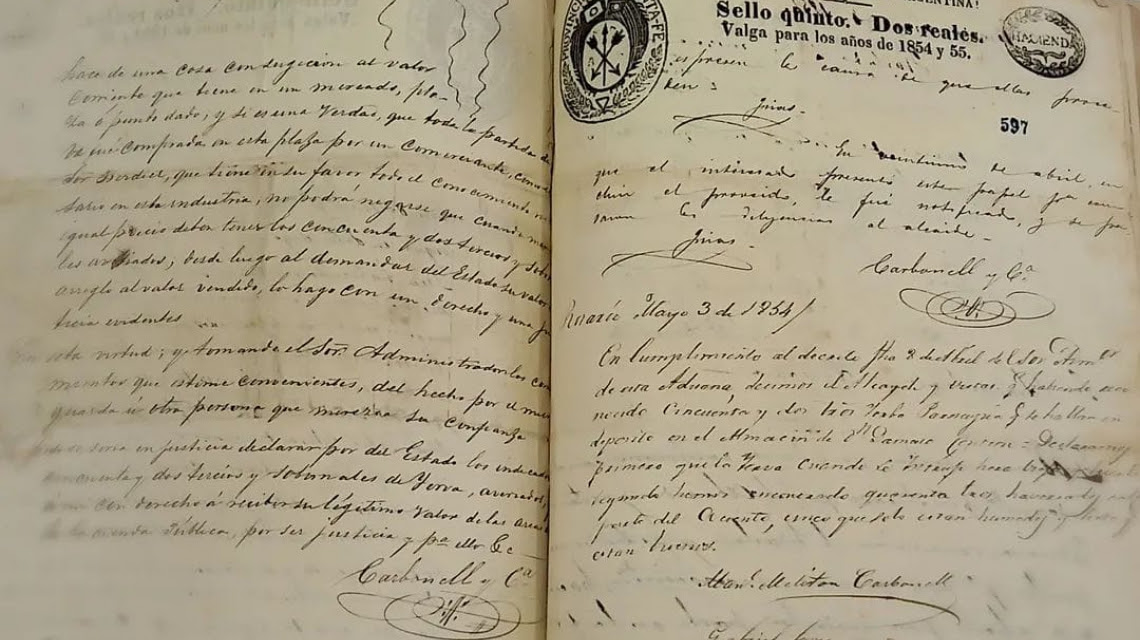 hace de una cosa con sugicion al valor
corriente que tiene en un mercado, pla-
za ó punto dado; y si es una verdad, que toda la partida de
va fué comprada en esta plaza por un comerciante, como
Sor Berdier, que tiene en su favor todo el conocimiento
sario en esta industria, no podrá negarse que cuando me
igual precio deben tener los cincuenta y dos tercios y sobor
les averiados; desde luego al demandar del Estado su valor
arreglo al valor vendido, lo hago con un derecho y una jus
ticia evidentes
esta virtud; y tomando el Sor. Administrador los co
mentos que estime convenientes, del hecho por el mis
guarda ú otra persona que merezca su confianza
se servirá en justicia declarar por del Estado los indicados
cincuenta y dos tercios y sobornales de Yerva, averiados,
á mi con derecho á recibir su légitimo valor de las arcas
de la Hacienda Pública, por ser justicia y pa. ello &c
Carbonell y Ca
ARGENTINA!
PROVINCIA SANTA-FÉ
Sello quinto. Dos reales.
Valga para los años de 1854 y 55.
HACIENDA
espresen la causa de que ellas proce-
den:
Frias.
597
En veintiuno de abril, en
que el interesado presentó este papel pa. con-
cluir el proveido, le fué notificado, y se pa-
saron las diligencias al alcaide.
Frias.
Carbonell y Ca.
Rosario Mayo 3 de 1854
En Cumplimiento al decreto fha 8 de Abril de el Sor Admor
de esta Aduana, decimos el Alcayde y vistas q habiendo reco-
nocido Cincuenta y dos tros Yerba Paraguya q se hallan en
deposito en el Almacin de Dn Damaso Centeno = Declaramos
primero que la Yerva cuando se
segundo hemos encontrado quarenta tros
resto del Cuento, cinco que solo estan humedos y
estan buenos.
Manl. Meliton Carbonell
Gabriel